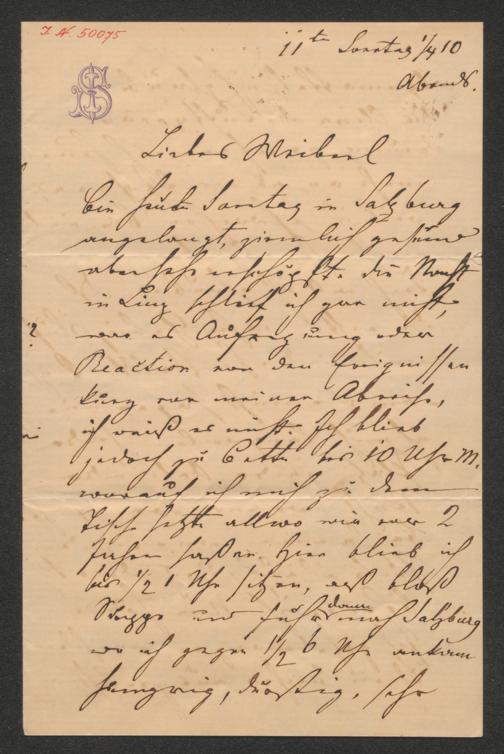 I. N. 50075
11te Sonntag 1/4 10
Abends.
JS
Liebes Weiberl
Bin heute Sonntag in Salzburg
angelangt, ziemlich gesund
aber sehr erschöpft. Die Nacht
in Linz schlief ich gar nicht,
war es Aufregung oder
Reaction von den Ereignissen
kurz vor meiner Abreise,
ich weiß es nicht. Ich blieb
jedoch zu Bette bis 10 Uhr M.
worauf ich mich zu dem
Tisch setzte allwo wir vor 2
Jahren saßen. Hier blieb ich
bis 1/2 1 Uhr sitzen, aß bloß
Suppe und fuhr dann nach Salzburg
wo ich gegen 1/2 6 Uhr ankam
hungrig, durstig, sehr